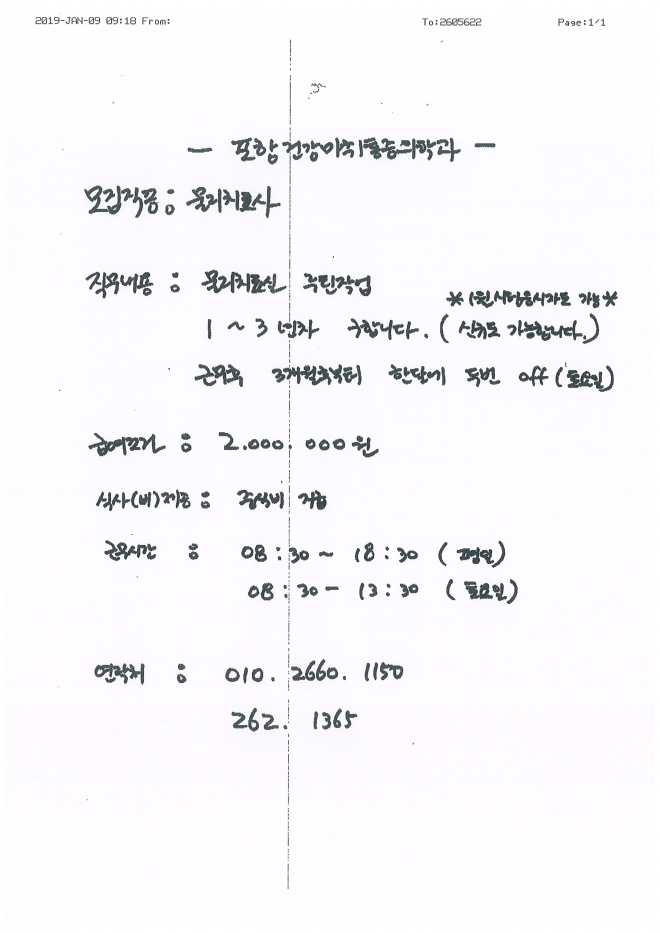 2019-JAN-09 09:18 From: To:2605622 Page:1/1
— 포항건강마취통증의학과 —
모집직종 : 물리치료사
직무내용 : 물리치료실 루틴작업
* 1월시험응시자도 가능 *
1 ~ 3 년차 구합니다. ( 신규도 가능합니다. )
근무후 3개월후부터 한달에 두번 off ( 토요일 )
급여조건 : 2.000.000원
식사(비)제공 : 중식비 지급
근무시간 : 08:30 ~ 18:30 ( 평일 )
08:30 - 13:30 ( 토요일 )
연락처 : 010. 2660. 1150
262. 1365